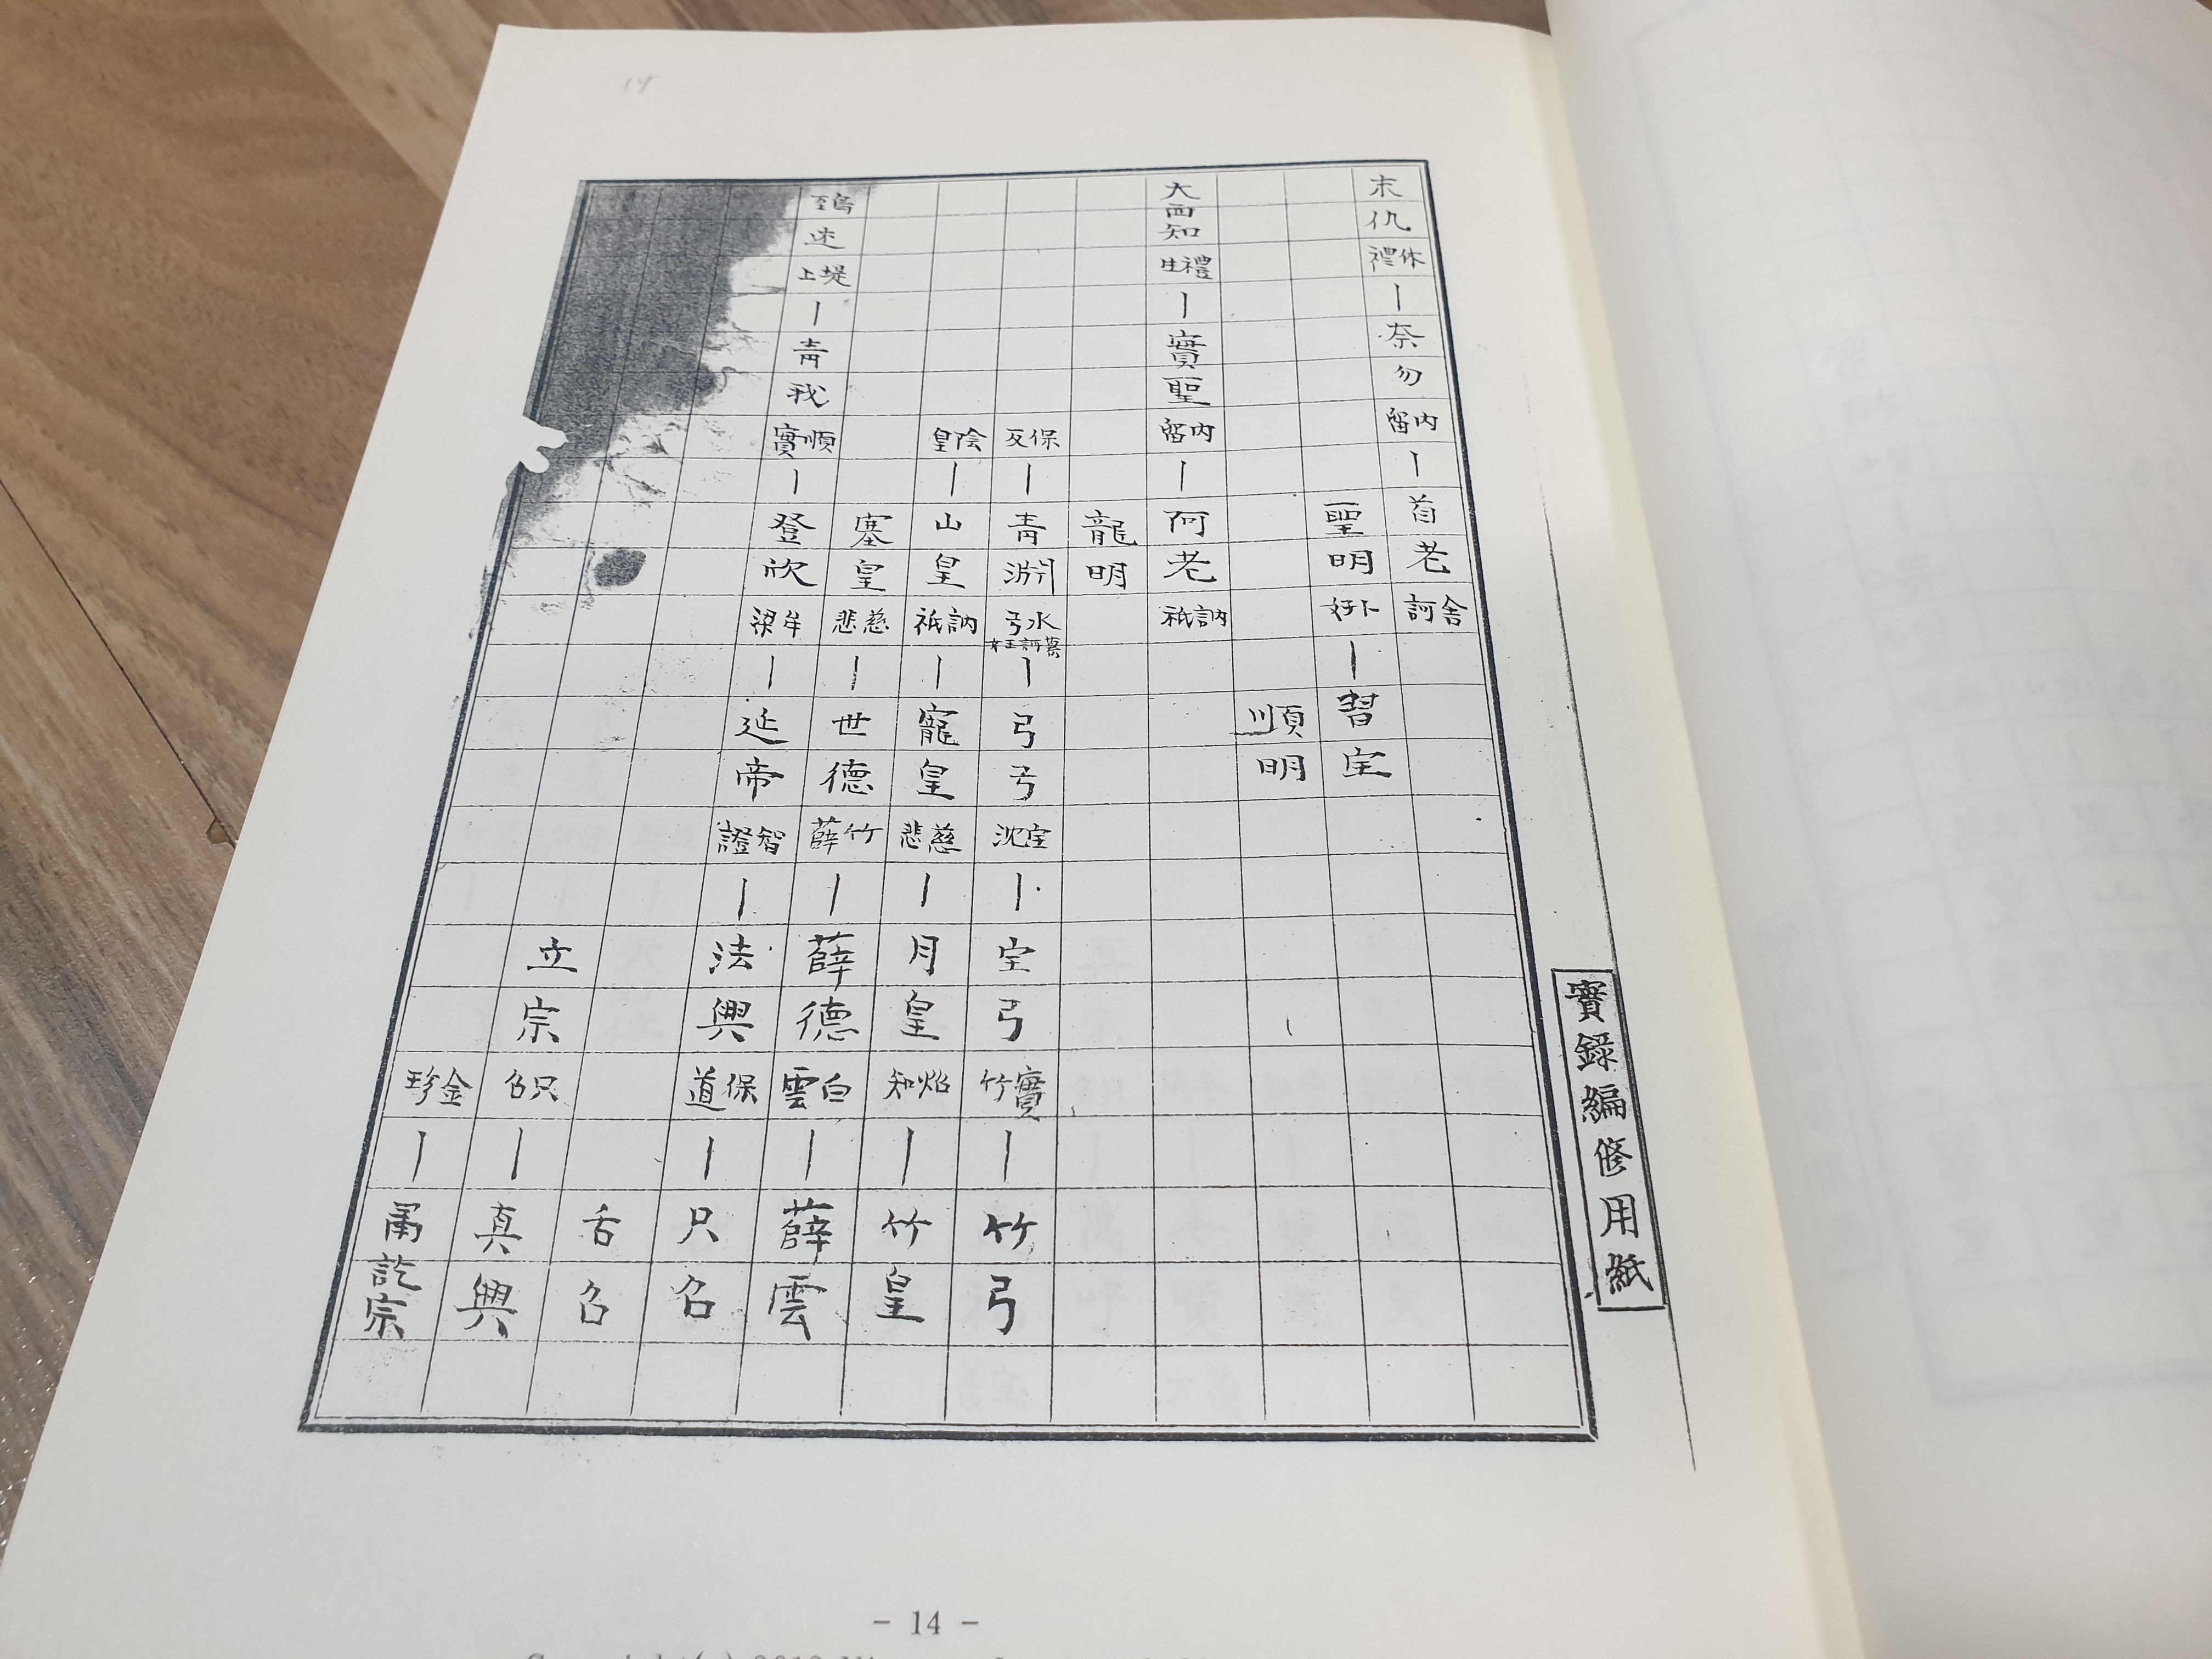 末仇禮休｜奈勿留內｜首老訶舍
聖明好卜｜習宝
順明
大西知生禮｜實聖留內｜阿老祇訥
龍明
反保｜青淵弓水｜弓弓沈宝｜宝弓竹實｜竹弓
皇陰｜山皇祇訥｜寵皇悲慈｜月皇知炤｜竹皇
塞皇悲慈｜世德薛竹｜薛德雲白｜薛雲
鵄述上堤｜青我寶順｜登欣梁牟｜延帝證智｜法興道保｜只召
舌召
立宗召只｜真興
珍金｜ 訖宗
實錄編修用紙
14
- 14 -